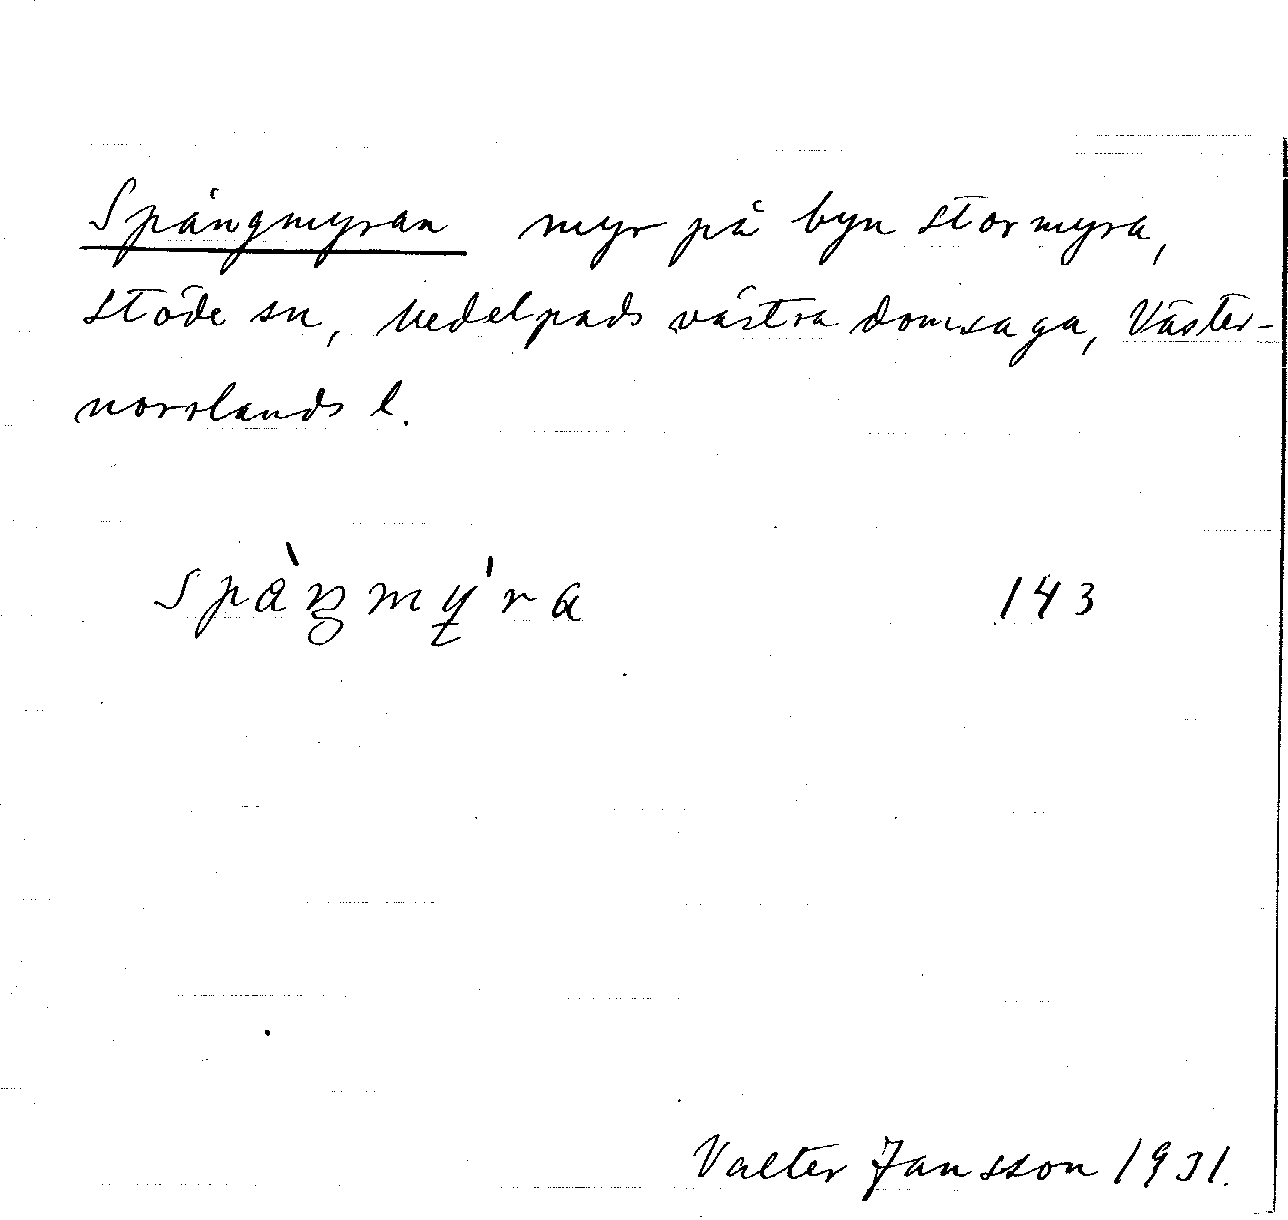 Spångmyran myr på byn Stormyra,
Stöde sn, Medelpads västra domsaga, Väster-
norrlands l.
spàŋmý̱ra 143
Valter Jansson 1931.